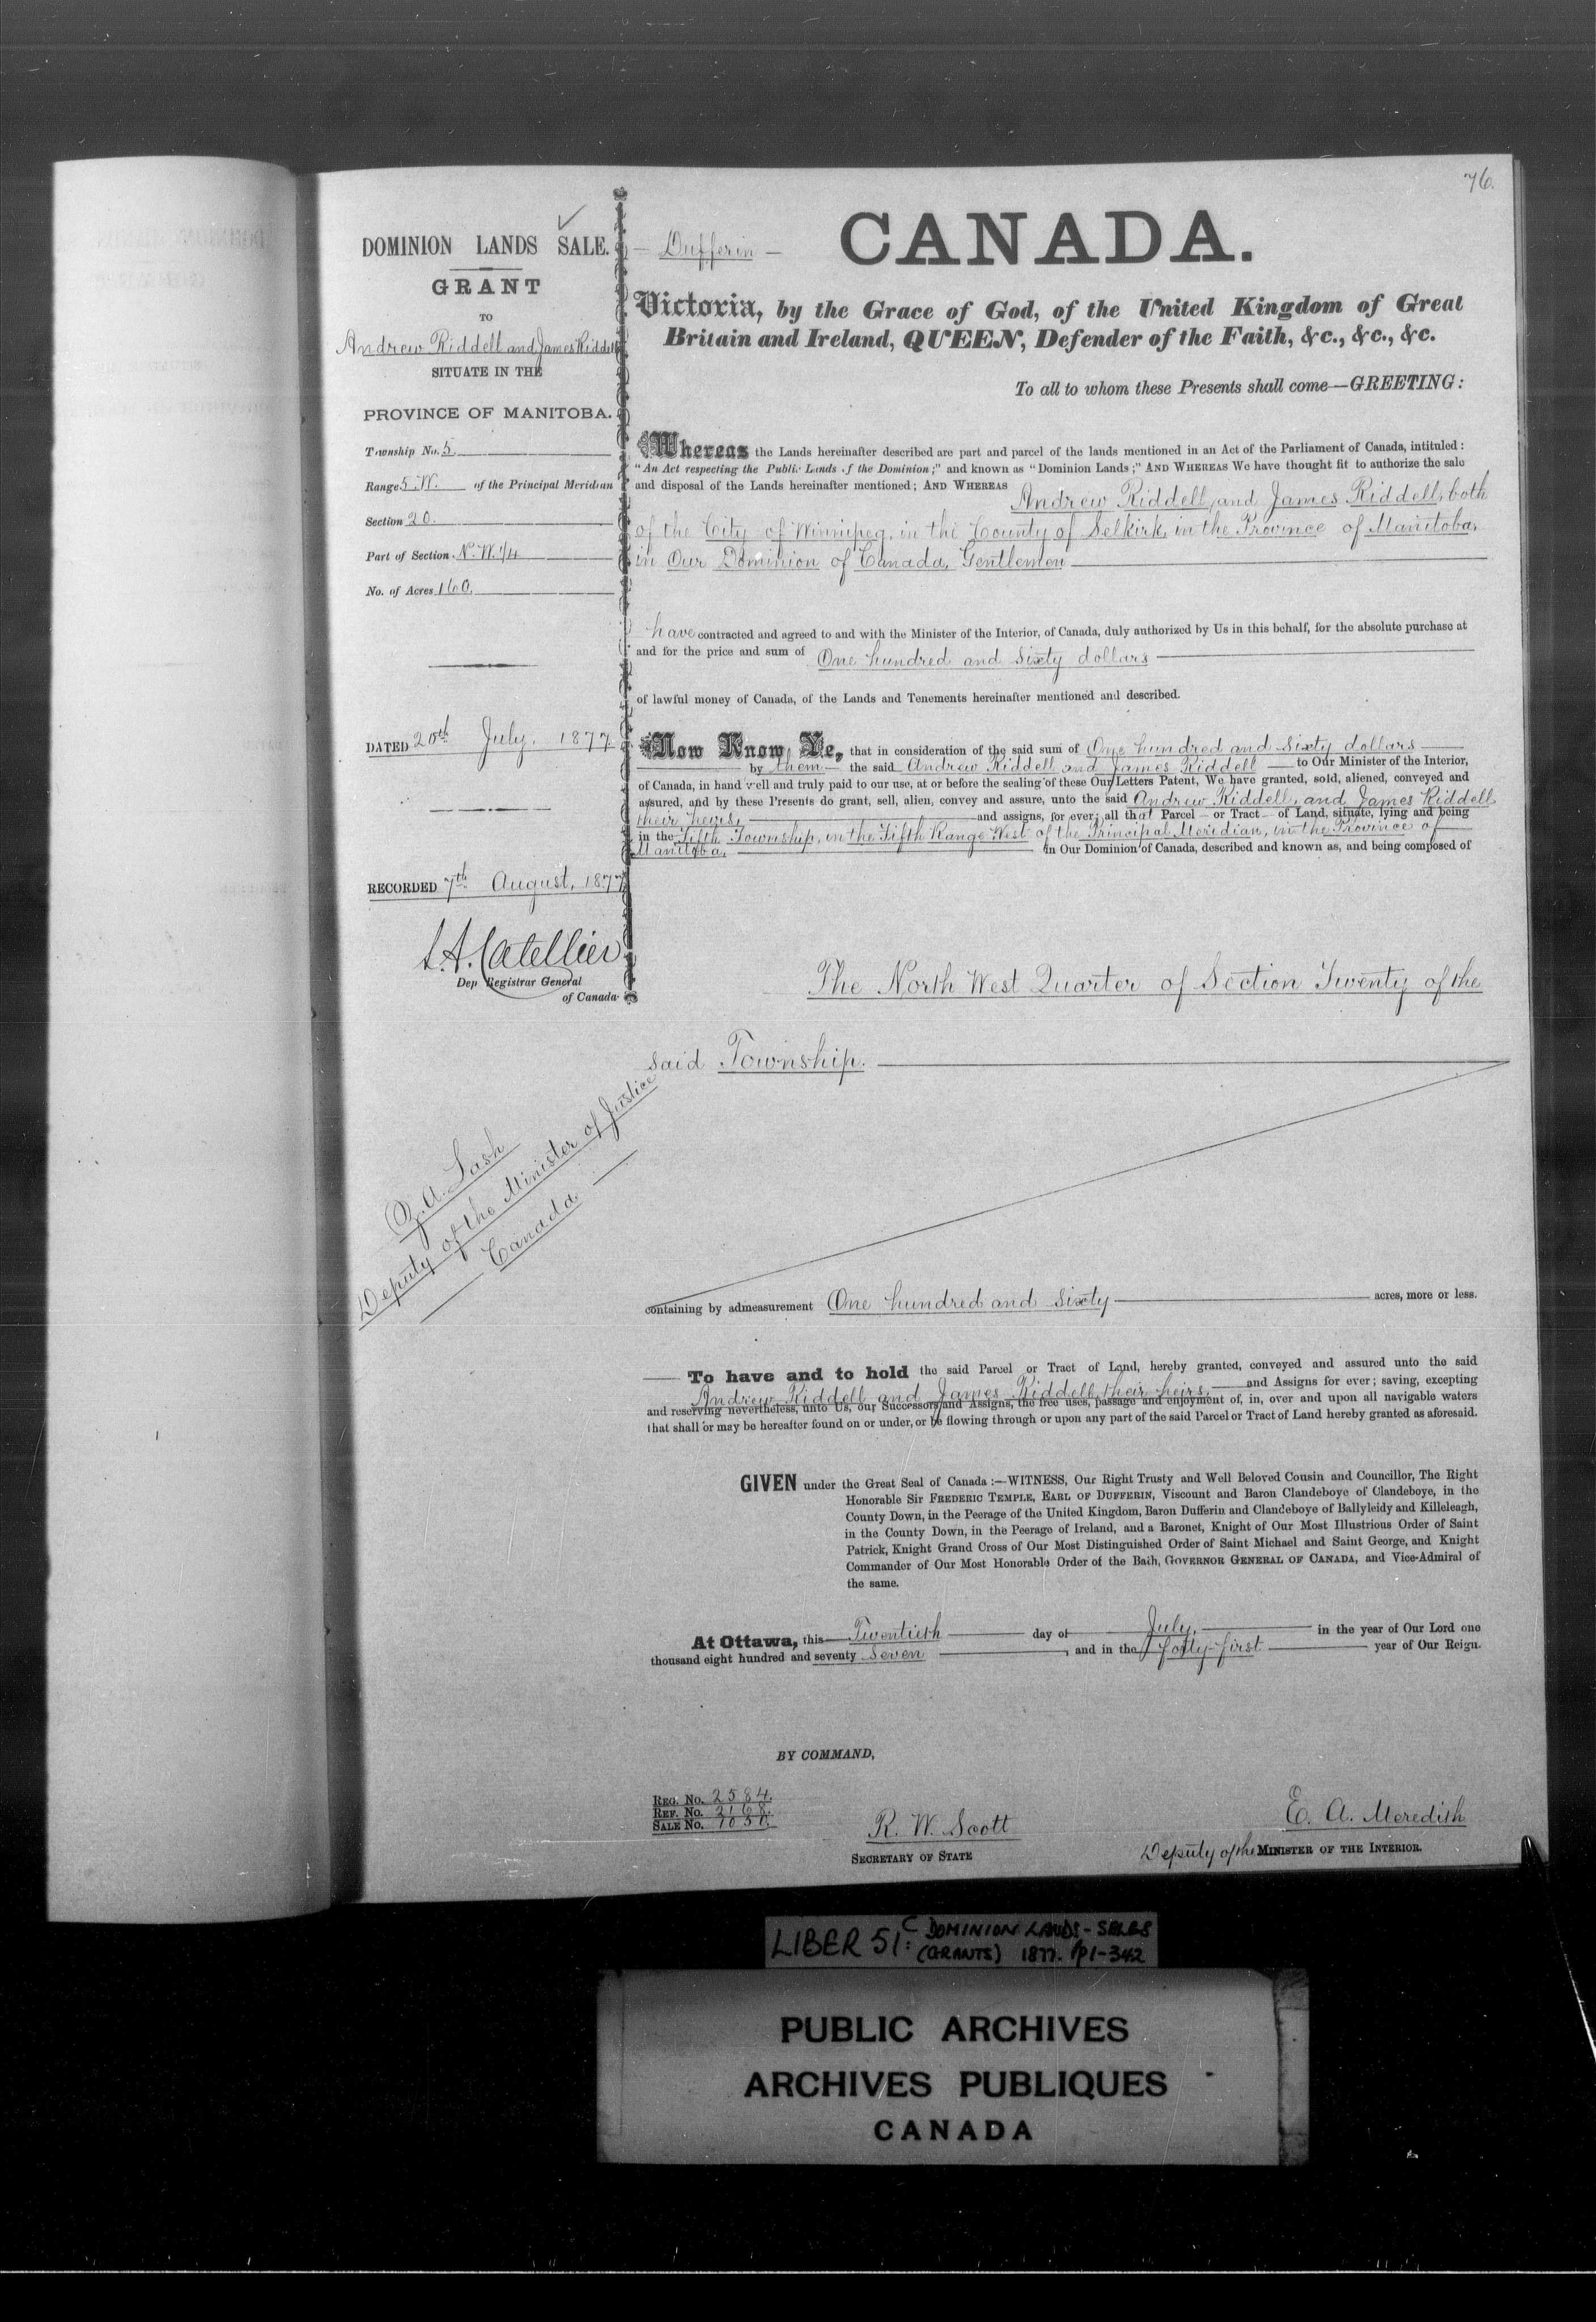 76.
DOMINION LANDS SALE.
GRANT
TO
Andrew Riddell and James Riddell
SITUATE IN THE
PROVINCE OF MANITOBA.
Township No. 5.
Range 5.W. of the Principal Meridian
Section 20.
Part of Section. N.W.1/4
No. of Acres 160.
DATED 20th July, 1877.
RECORDED 7th August, 1877
L.A. Catellier
Dep Registrar General
of Canada.
Z. A. Lash
Deputy of the Minister of Justice
Canada
— Dufferin —
CANADA.
Victoria, by the Grace of God, of the United Kingdom of Great
Britain and Ireland, QUEEN, Defender of the Faith, &c., &c., &c.
To all to whom these Presents shall come—GREETING:
Whereas the Lands hereinafter described are part and parcel of the lands mentioned in an Act of the Parliament of Canada, intituled:
"An Act respecting the Public Lands of the Dominion;" and known as "Dominion Lands;" AND WHEREAS We have thought fit to authorize the sale
and disposal of the Lands hereinafter mentioned; AND WHEREAS Andrew Riddell, and James Riddell, both
of the City of Winnipeg, in the County of Selkirk, in the Province of Manitoba,
in Our Dominion of Canada, Gentlemen
have contracted and agreed to and with the Minister of the Interior, of Canada, duly authorized by Us in this behalf, for the absolute purchase at
and for the price and sum of One hundred and Sixty dollars
of lawful money of Canada, of the Lands and Tenements hereinafter mentioned and described.
Now Know Ye, that in consideration of the said sum of One hundred and Sixty dollars
by them the said Andrew Riddell and James Riddell to Our Minister of the Interior,
of Canada, in hand well and truly paid to our use, at or before the sealing of these Our Letters Patent, We have granted, sold, aliened, conveyed and
assured, and by these Presents do grant, sell, alien, convey and assure, unto the said Andrew Riddell, and James Riddell
their heirs, and assigns, for ever; all that Parcel — or Tract — of Land, situate, lying and being
in the Fifth Township, in the Fifth Range West of the Principal Meridian, in the Province of
Manitoba, in Our Dominion of Canada, described and known as, and being composed of
The North West Quarter of Section Twenty of the
said Township.
containing by admeasurement One hundred and Sixty acres, more or less.
To have and to hold the said Parcel or Tract of Land, hereby granted, conveyed and assured unto the said
Andrew Riddell and James Riddell, their heirs, and Assigns for ever; saving, excepting
and reserving nevertheless, unto Us, our Successors and Assigns, the free uses, passage and enjoyment of, in, over and upon all navigable waters
that shall or may be hereafter found on or under, or be flowing through or upon any part of the said Parcel or Tract of Land hereby granted as aforesaid.
GIVEN under the Great Seal of Canada:—WITNESS, Our Right Trusty and Well Beloved Cousin and Councillor, The Right
Honorable Sir FREDERIC TEMPLE, EARL OF DUFFERIN, Viscount and Baron Clandeboye of Clandeboye, in the
County Down, in the Peerage of the United Kingdom, Baron Dufferin and Clandeboye of Ballyleidy and Killeleagh,
in the County Down, in the Peerage of Ireland, and a Baronet, Knight of Our Most Illustrious Order of Saint
Patrick, Knight Grand Cross of Our Most Distinguished Order of Saint Michael and Saint George, and Knight
Commander of Our Most Honorable Order of the Bath, GOVERNOR GENERAL OF CANADA, and Vice-Admiral of
the same.
At Ottawa, this Twentieth day of July, in the year of Our Lord one
thousand eight hundred and seventy seven, and in the forty-first year of Our Reign.
BY COMMAND,
REG. No. 2584.
REF. No. 2168.
SALE No. 1050.
R. W. Scott
SECRETARY OF STATE
E. A. Meredith
Deputy of the MINISTER OF THE INTERIOR.
LIBER 51C: DOMINION LANDS-SALES
(GRANTS) 1877. pp1-342
PUBLIC ARCHIVES
ARCHIVES PUBLIQUES
CANADA